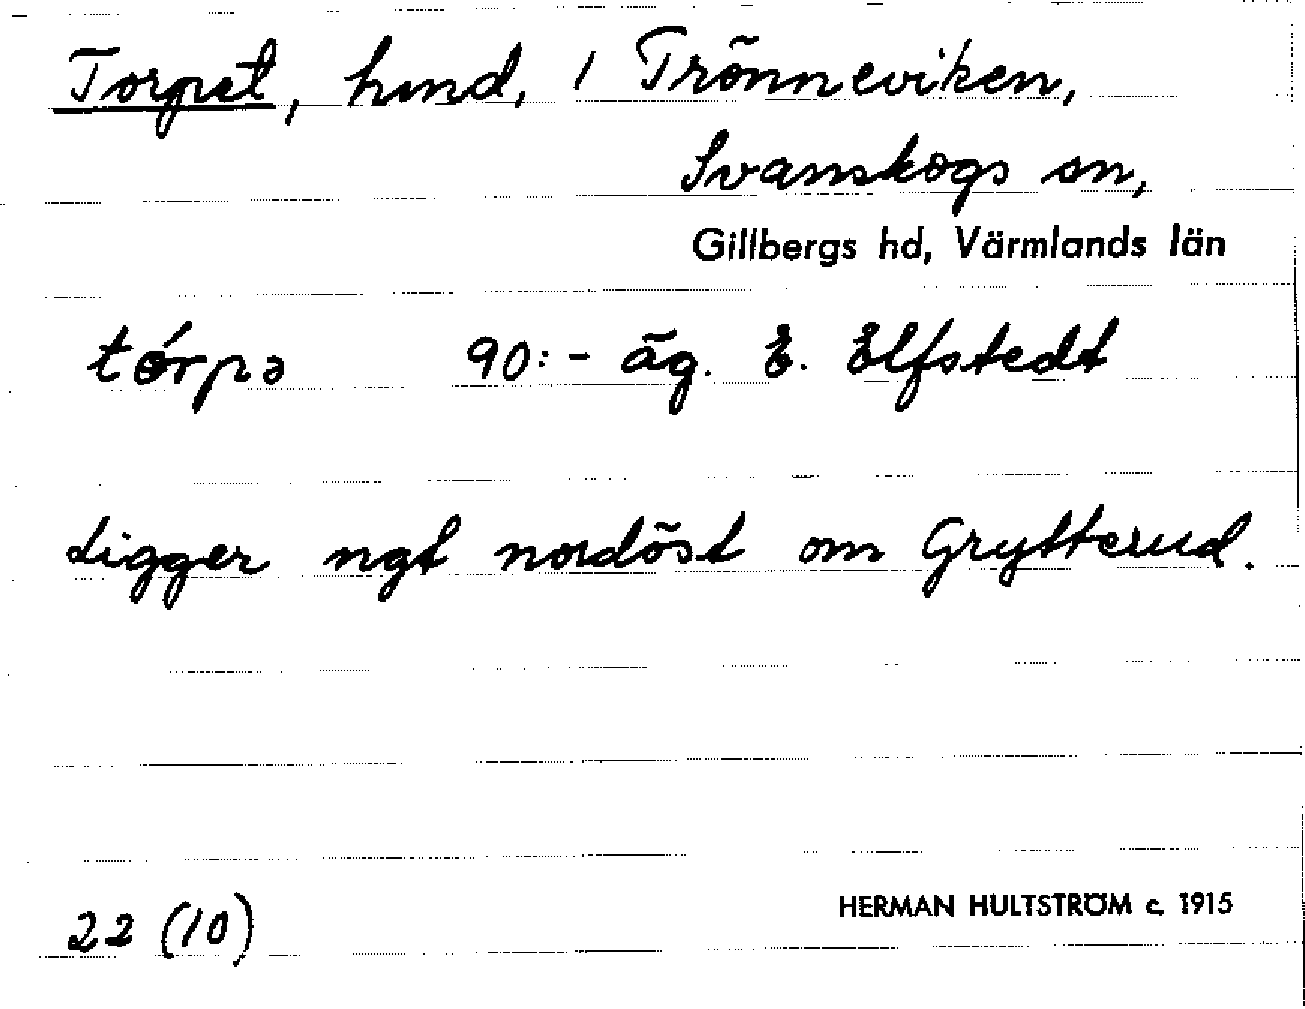 Torpet, hmd, / Trönneviken,
Svanskogs sn,
Gillbergs hd, Värmlands län
tórpə 90:- äg. E. Elfstedt
Ligger ngt nordöst om Grytterud.
22 (10)
HERMAN HULTSTRÖM c. 1915